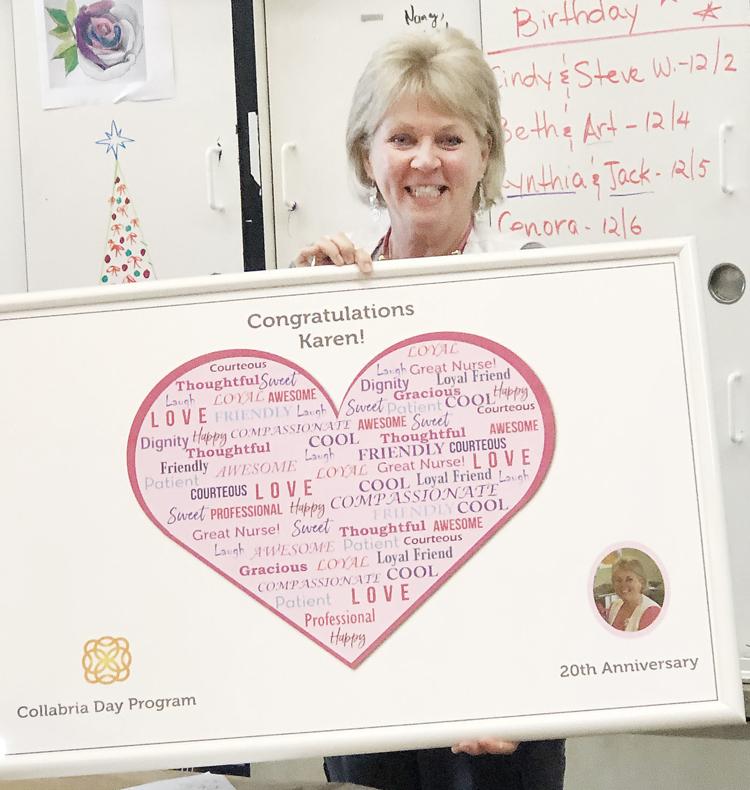 Nancy,
Birthday
Cindy & Steve W.-12/2
Beth & Art - 12/4
Cynthia & Jack - 12/5
Cenora - 12/6
Congratulations
Karen!
Courteous
Thoughtful Sweet
Laugh LOYAL AWESOME
LOVE FRIENDLY Laugh
Dignity Happy COMPASSIONATE
Thoughtful COOL
Friendly AWESOME Laugh
Patient
COURTEOUS LOVE
LOYAL
Laugh Great Nurse!
Dignity Loyal Friend
Gracious Happy
Sweet Patient COOL
Courteous
AWESOME Sweet
Thoughtful AWESOME
FRIENDLY COURTEOUS
LOYAL Great Nurse! LOVE
COOL Loyal Friend Laugh
COMPASSIONATE
Sweet PROFESSIONAL Happy FRIENDLY COOL
Great Nurse! Sweet Thoughtful AWESOME
Laugh AWESOME Patient Courteous
Gracious LOYAL Loyal Friend
COMPASSIONATE COOL
Patient LOVE
Professional
Happy
20th Anniversary
Collabria Day Program